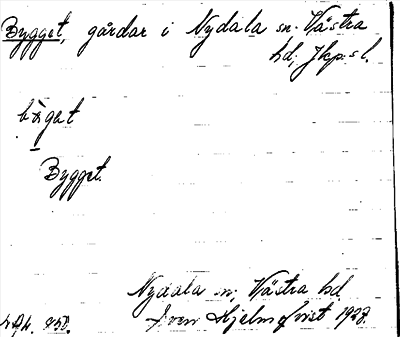 Bygget, gårdar i Nydala sn. Västra
hd, Jkp. sl.
Bygget.
Nydala sn, Västra hd.
Sven Hjelmqvist 1923.